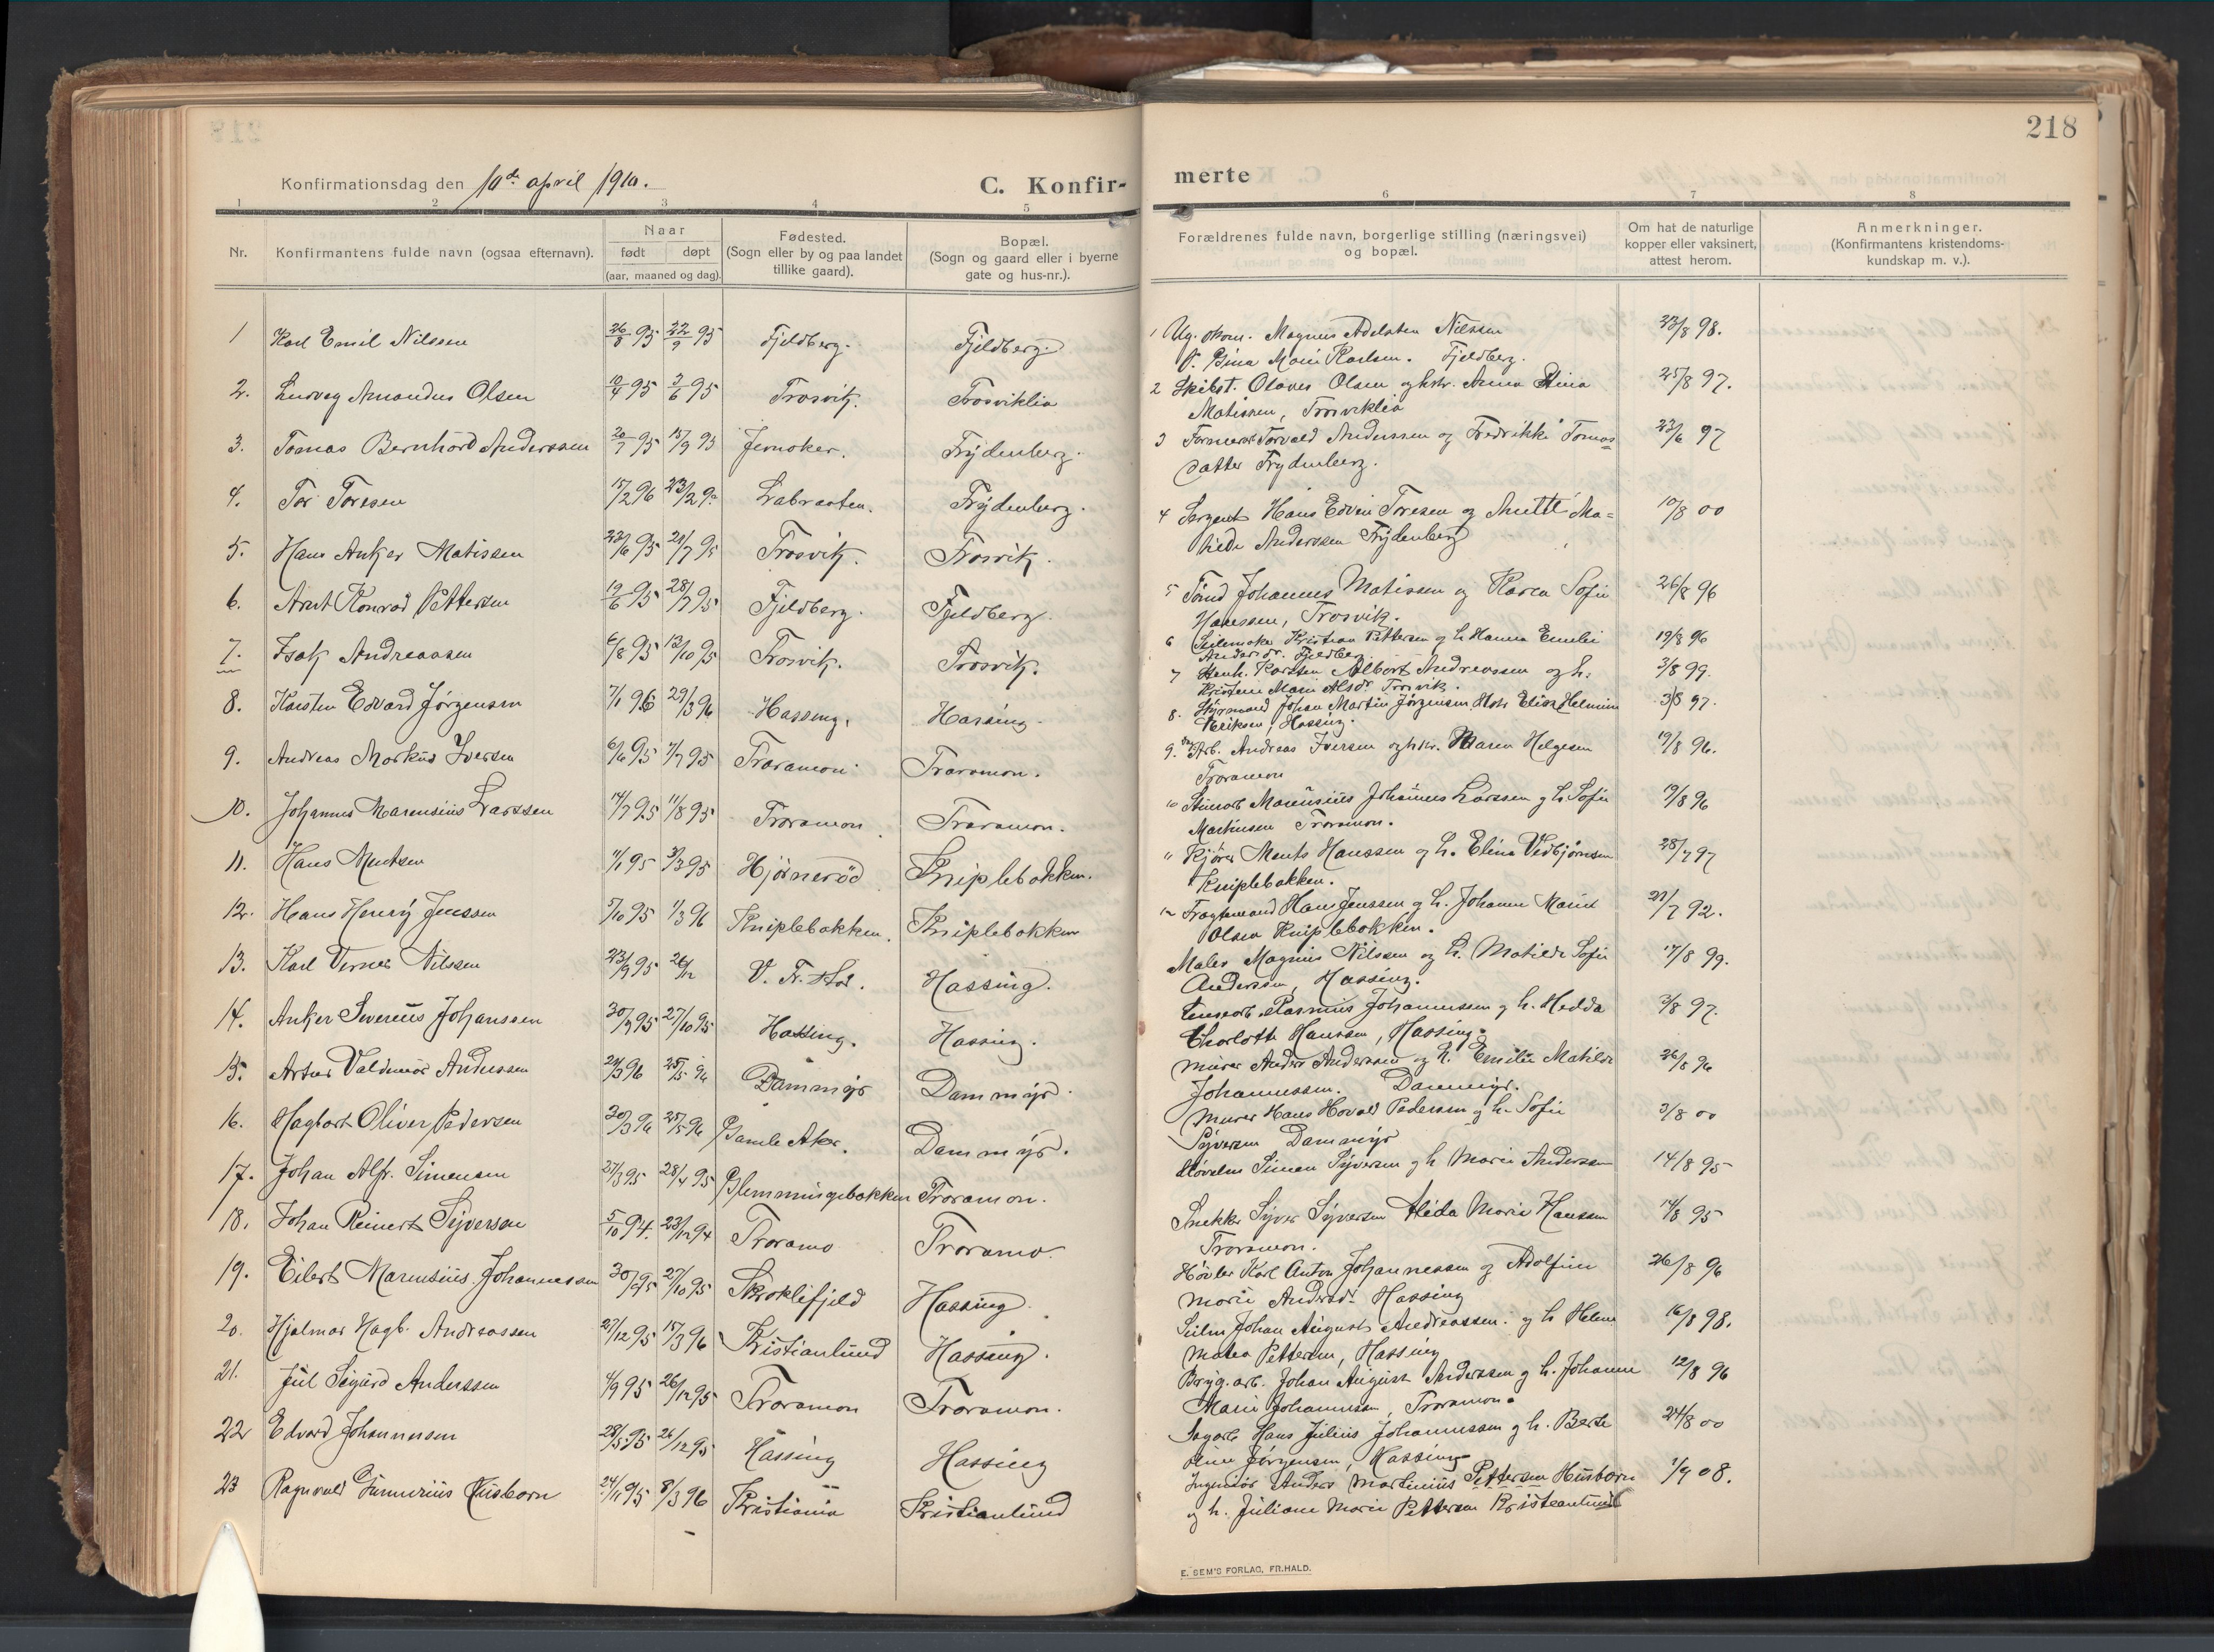 218
Konfirmationsdag den 10de april 1910.
C. Konfir-
merte
1 2 3 4 5 6 7 8
Nr.
Konfirmantens fulde navn (ogsaa efternavn).
Naar
født døpt
(aar, maaned og dag).
Fødested.
(Sogn eller by og paa landet
tillike gaard).
Bopæl.
(Sogn og gaard eller i byerne
gate og hus-nr.).
Forældrenes fulde navn, borgerlige stilling (næringsvei)
og bopæl.
Om hat de naturlige
kopper eller vaksinert,
attest herom.
Anmerkninger.
(Konfirmantens kristendoms-
kundskap m. v.).
1 Karl Emil Nilssen 26/8 95 22/9 95 Fjeldberg. Fjeldberg.
2. Amandus Olsen 10/4 95 3/6 95 Trosvik. Trosviklia
3. Tomas Bernhard Anderssen 20/7 95 15/9 95 Frydenberg.
4. Tor Toresen 17/2 96 23/2 Labraaten. Frydenberg.
5. Hans Anker Matissen 23/6 95 21/7 95 Trosvik. Trosvik.
6. Arnt Konrad Pettersen 19/6 95 28/7 95 Fjeldberg. Fjeldberg.
7. Isak Andreassen 6/8 95 13/10 95 Trosvik. Trosvik.
8. Karsten Edvard Jørgensen 7/1 96 29/3 96 Hassing. Hassing.
9. Andreas Markus Iversen 6/6 95 7/7 95 Traramon. Traramon.
10. Johannes Marensius Larssen 14/7 95 11/8 95 Traramon. Traramon.
11. Hans Mentsen 11/1 95 3/3 95 Hjørnerød Kniplebakken.
12. Hans Henry Jenssen 5/10 95 1/3 96 Kniplebakken. Kniplebakken
13. Karl Verner Nilssen 23/9 95 26/12 V. Fr. Hal. Hassing.
14. Anker Severius Johanssen 30/7 95 27/10 95 Hassing. Hassing.
15. Artur Valdemar Anderssen 24/3 96 25/5 96 Dammyr Dammyr.
16. Hagbart Oliver Pedersen 30/3 96 25/5 96 Gamle Aker. Dammyr.
17. Johan Alfr. Simensen 27/3 95 28/4 95 Glemmingebakken Traramon.
18. Johan Reinert Syversen 5/10 94. 23/12 94 Traramo Traramo
19. Eilert Marensius Johannessen 30/7 95 27/10 95 Skroklifjeld Hassing.
20. Hjalmar Hagb. Andreassen 27/12 95 15/3 96 Kristianlund Hassing.
21. Jul Sigurd Anderssen 4/9 95 26/12 95 Traramon Traramon.
22 Edvard Johannessen 28/5 95 26/12 95 Hassing Hassing
23 Ragnvald Gunnerius Husborn 24/11 95 8/3 96 Kristiania Kristianlund
1 Ug. Magnus Adelsten Nilssen 23/8 98.
Gina Marie Karlsen. Fjeldberg.
2 Skibst. Olaves Olsen og hstr. Anna Stina 25/8 97.
Matissen, Trosviklia
3 Torvald Anderssen og Fredrikke Tomas= 23/6 97
datter Frydenberg.
4 Sergent Hans Edvin Toresen og Anette Ma= 10/8 00
Anderssen Frydenberg
5 Johannes Matissen og Karen Sofie 26/8 96
Hanssen, Trosvik.
6 Seilmaker Kristian Pettersen og h. Hanna Emelie 19/8 96
Andersdr. Fjeldberg.
7 Karsten Albert Andreassen og h. 3/8 99.
Kristine Marie Trosvik.
8. Styrmand Johan Martin Jørgensen Hstr Elise Helmine 3/8 97.
Eriksen, Hassing.
9. Arb. Andreas Iversen og hstr. Maren Helgesen 19/8 96.
Traramon
10 Marensius Johannes Larssen og h. Sofie 19/8 96
Martinsen Traramon.
11 Kjører Ments Hanssen og h. Elina Vedbjørnsen 28/7 97
Kniplebakken.
12 Fragtemand Hans Jenssen og h. Johanne Marie 21/7 92.
Olsen Kniplebakken.
Maler Magnus Nilssen og h. Matilde Sofie 17/8 99.
Anderssen, Hassing.
Rasmus Johannessen og h. Hedda 3/8 97.
Charlotte Hanssen, Hassing.
Murer Anders Anderssen og h. Emilie Matilde 26/8 96
Johannessen. Dammyr.
Murer Hans Hovald Pedersen og h. Sofie 3/8 00
Syversen Dammyr
Simen Syversen og h Marie Andersen 14/8 95
Snekker Syver Syversen Alida Marie Hanssen 14/8 95
Traramon.
Høvler Karl Anton Johannessen og Adolfine 26/8 96
Marie Andersdr. Hassing
Johan August Andreassen og h Helene 16/8 98.
Matea Pettersen, Hassing
Bryg.arb. Johan August Anderssen og h. Johanne 12/8 96
Marie Johannessen, Traramon.
Sagarb Hans Julius Johannessen og h. Berte 24/8 00
Jørgensen, Hassing
Ingeniør Anders Martinius Pettersen Husborn 1/9 08.
og h. Juliane Marie Pettersen Kristianlund
E. SEM'S FORLAG, FR.HALD.